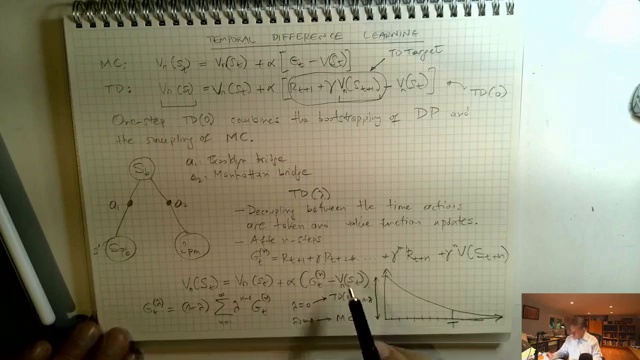 TEMPORAL DIFFERENCE LEARNING
MC: Vπ(St) = Vπ(St) + α [Gt − V(St)]
TD Target
TD: Vπ(St) = Vπ(St) + α [Rt+1 + γ Vπ(St+1) − Vπ(St)]
TD(0)
One-step TD(0) combines the bootstrapping of DP and
the sampling of MC.
S6
a1: Brooklyn bridge
a2: Manhattan bridge
a1
a2
2pm
TD(λ)
- Decoupling between the time actions
are taken and value function updates.
- After n-steps
Gt(n) = Rt+1 + γ Rt+2 + + γ^n-1 Rt+n + γ^n V(St+n)
Vπ(St) = Vπ(St) + α (Gt(n) − Vπ(St))
Gt(λ) = (1−λ) ∑ n=1 ∞ λ^n-1 Gt(n)
λ=0 →
→ MC
T